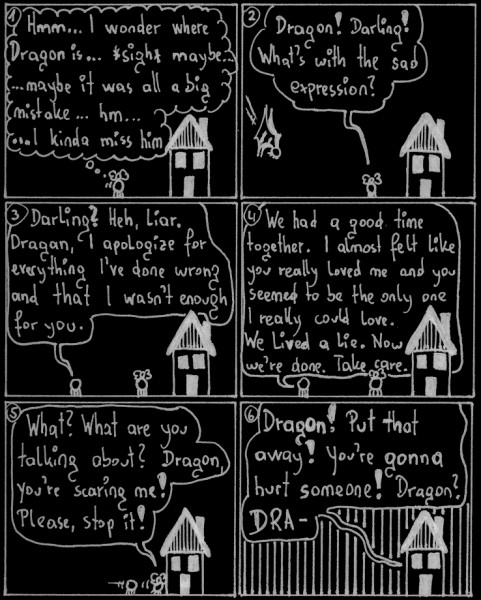 1
Hmm... I wonder where
Dragon is... *sigh* maybe...
...maybe it was all a big
mistake... hm...
...I kinda miss him
2
Dragon! Darling!
What's with the sad
expression?
3
Darling? Heh, Liar.
Dragan, I apologize for
everything I've done wrong
and that I wasn't enough
for you.
4
We had a good time
together. I almost felt like
you really loved me and you
seemed to be the only one
I really could love.
We Lived a lie. Now
we're done. Take care.
5
What? What are you
talking about? Dragon,
you're scaring me!
Please, stop it!
6
Dragon! Put that
away! You're gonna
hurt someone! Dragon?
DRA-